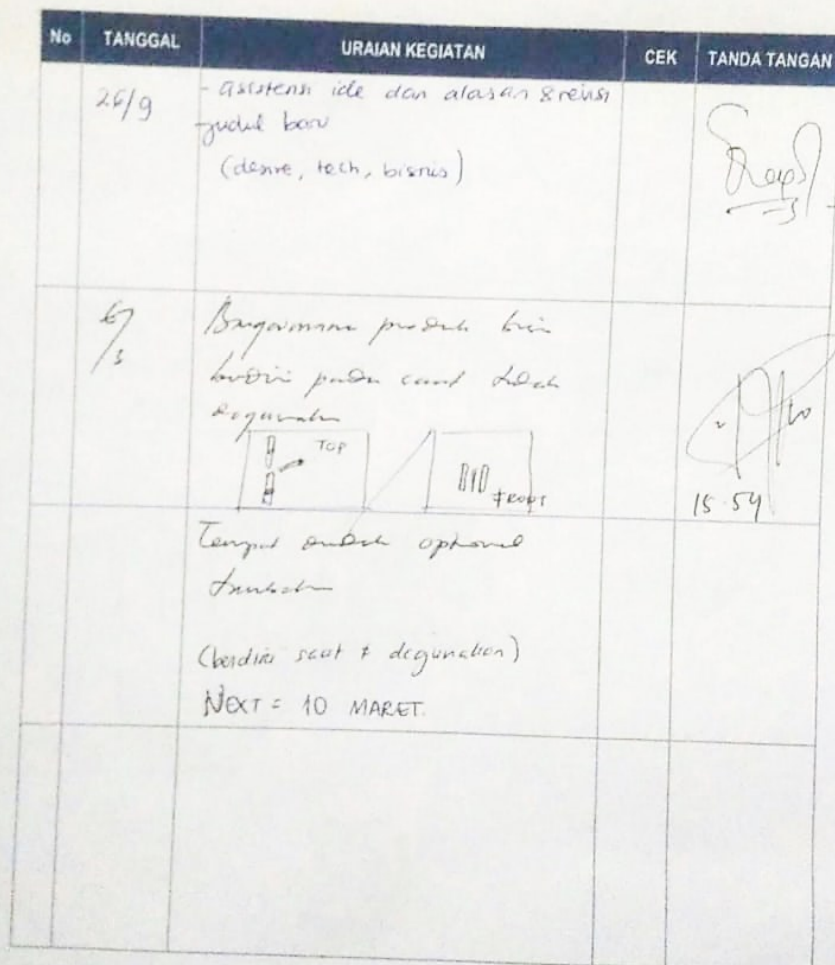 No TANGGAL URAIAN KEGIATAN CEK TANDA TANGAN
26/9 - asistensi ide dan alasan & revisi
judul baru
(desire, tech, bisnis)
6/3 Bagaimana produk bisa
berdiri pada saat tidak
digunakan
TOP
FRONT
15.54
Tempat optional
tambahan
(berdiri saat ≠ digunakan)
NEXT = 10 MARET.